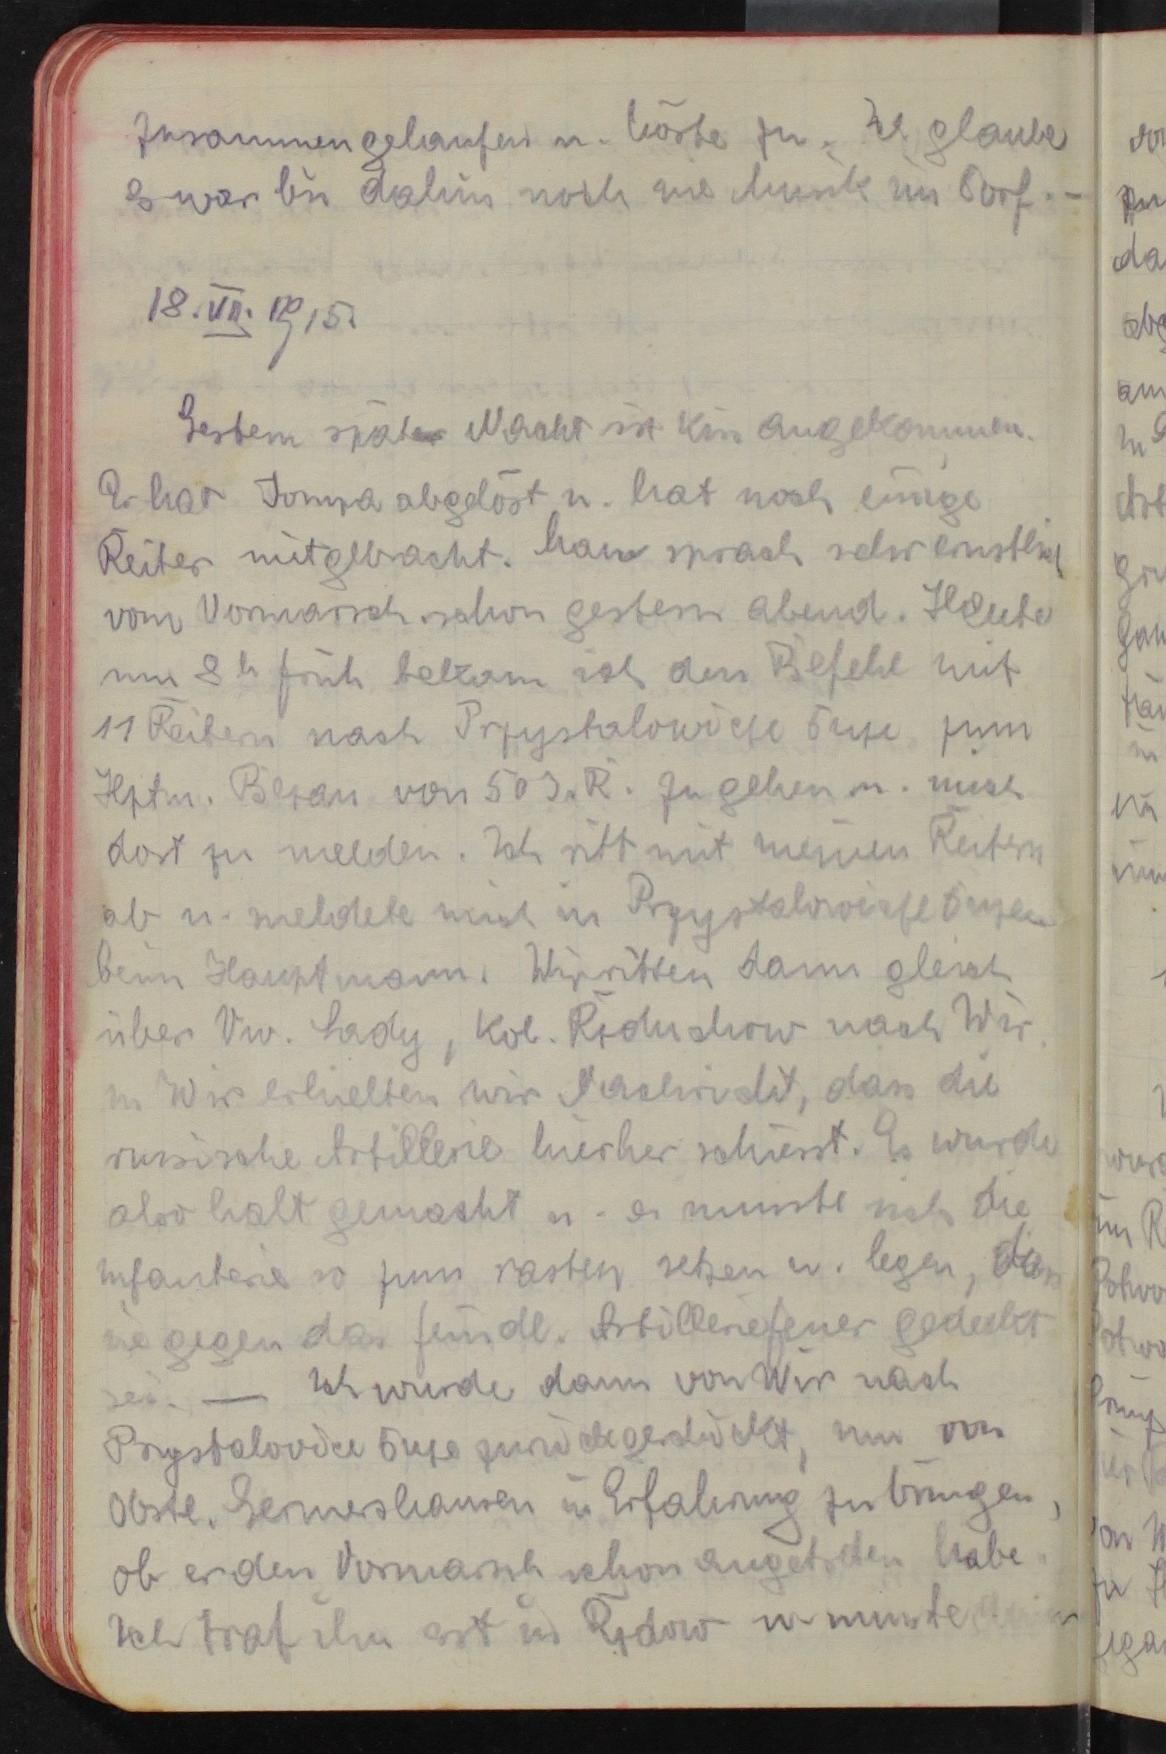 zusammengelaufen u. hörte zu. Ich glaube
es war bis dahin noch nie Musik im Dorf. -
18. VII. 1915.
Gestern späte Nacht ist Kin angekommen.
Er hat Tompa abgelöst u. hat noch einige
Reiter mitgebracht. Man sprach sehr ernstlich
vom Vormarsch schon gestern abend. Heute
um 8h früh bekam ich den Befehl mit
11 Reitern nach Przystalowice duze zum
Hptm. Beran von 50 J.R. zu gehen u. mich
dort zu melden. Ich ritt mit meinen Reitern
ab u. meldete mich in Przystalowice duze
beim Hauptmann. Wir ritten dann gleich
über Vw. Lady, Kol. Rzduchow nach Wir.
In Wir erhielten wir Nachricht, dass die
russische Artillerie hierher schiesst. Es wurde
also halt gemacht u. es musste sich die
Infanterie so zum rasten setzen u. legen, dass
sie gegen das feindl. Artilleriefeuer gedeckt
sei. — Ich wurde dann von Wir nach
Prystalovice duze zurückgeschickt, um von
Obstl. Germershausen in Erfahrung zu bringen,
ob er den Vormarsch schon angetreten habe.
Ich traf ihn erst in Rzdow u. musste